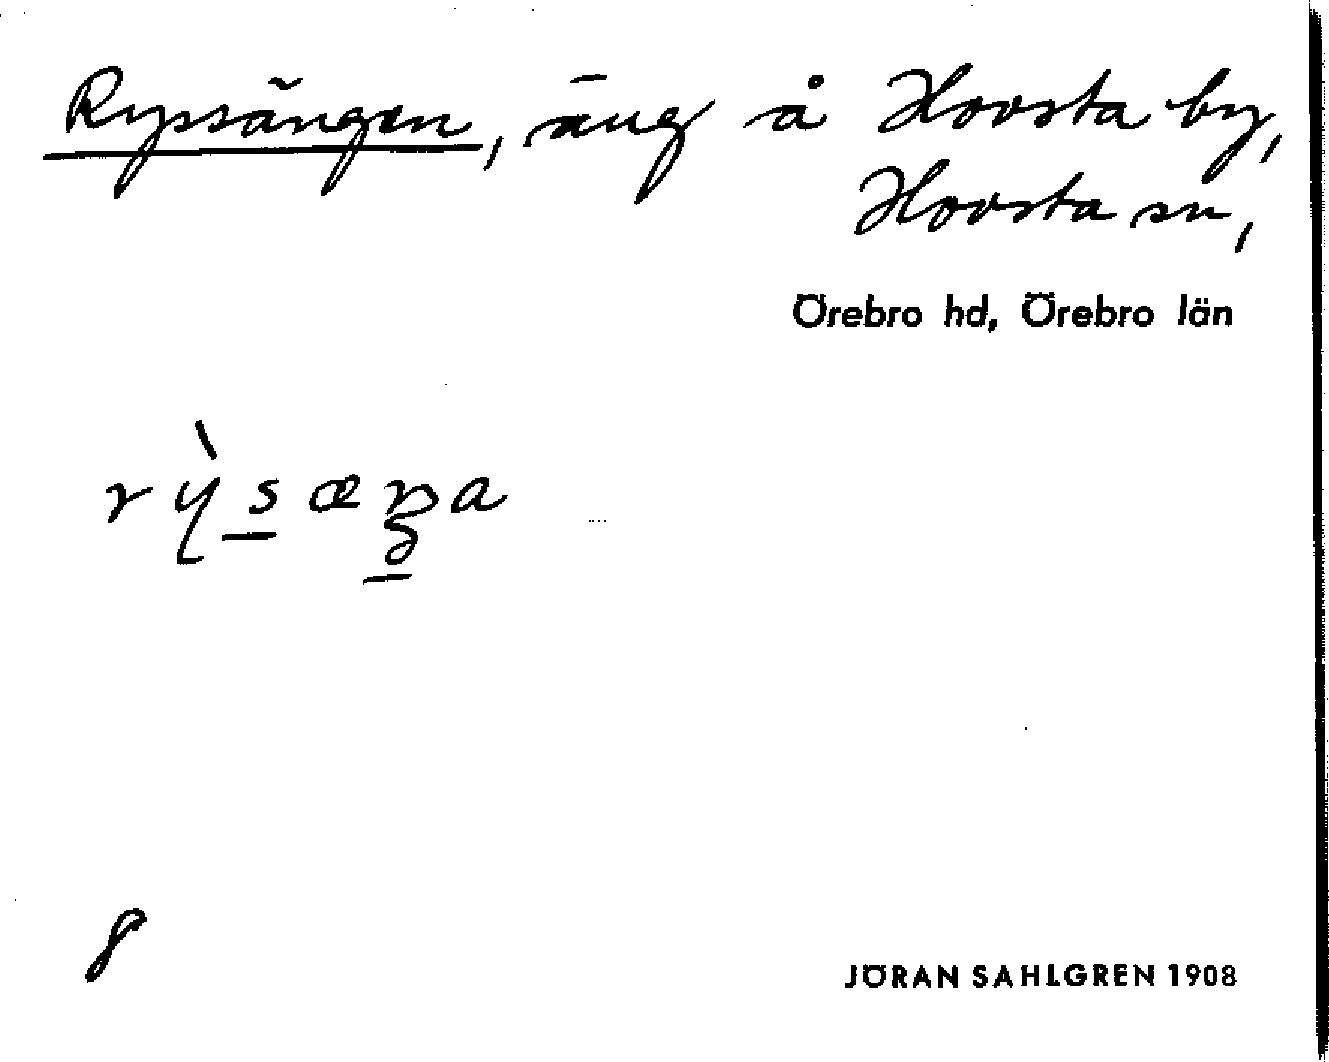 Ryssängen, äng å Hovsta by,
Hovsta sn,
Örebro hd, Örebro län
rỳsæŋa
8
JÖRAN SAHLGREN 1908